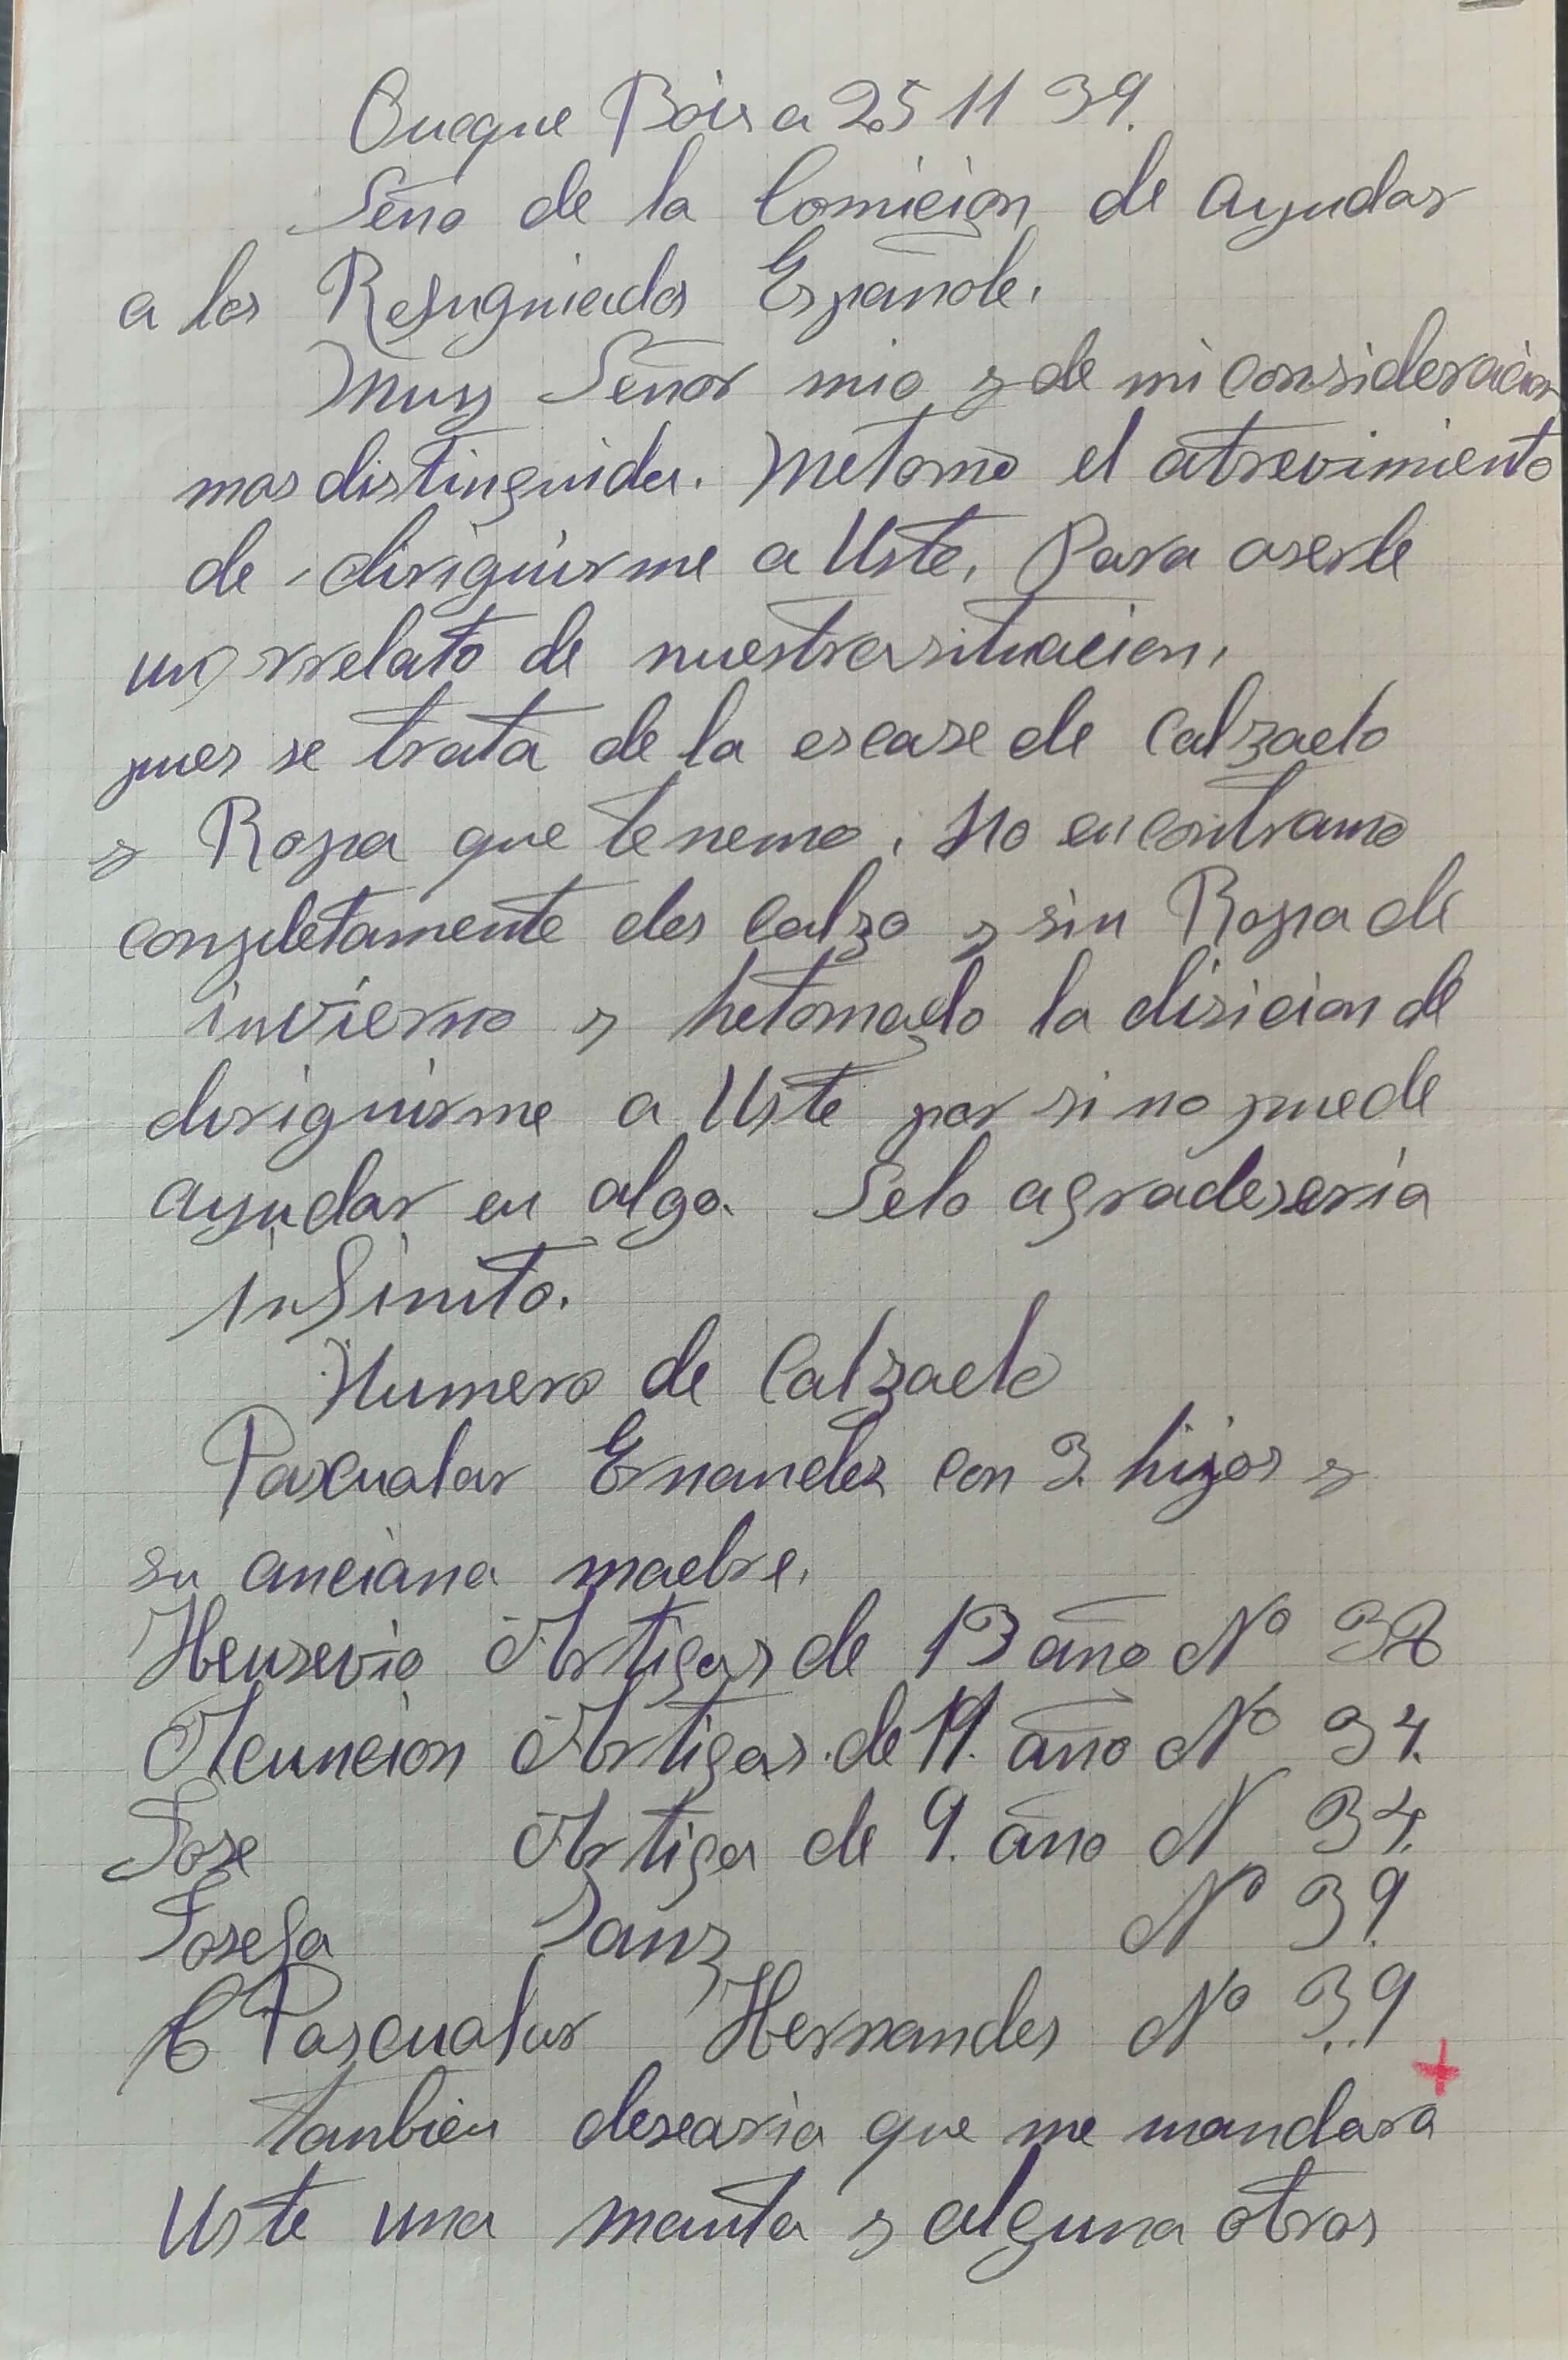 Oucque Bois a 25 11 39.
Seño de la Comicion de Ayudar
a los Refugniados Españole.
Muy Señor mio y de mi consideracion
mas distinguida. Me tomo el atrevimiento
de diriguirme a Uste. Para aserle
un rrelato de nuestra situacion,
pues se trata de la escase de Calzado
y Ropa que tenemo. No encontramo
conpletamente des Calzo y sin Ropa de
invierno y he tomado la disicion de
diriguirme a Uste por si no puede
ayudar en algo. Selo agradeseria
infinito.
Numero de Calzado
Pascualar Ernandez con 3 hijos y
su anciana madre.
Heusevio Artigas de 13 año Nº 38
Acuncion Artigas de 11. año Nº 34.
Jose Artiga de 9. año N 34.
Josefa Sanz Nº 39.
Pascualar Hernandes Nº 39
tanbien desearia que me mandara
Uste una manta y alguna otras